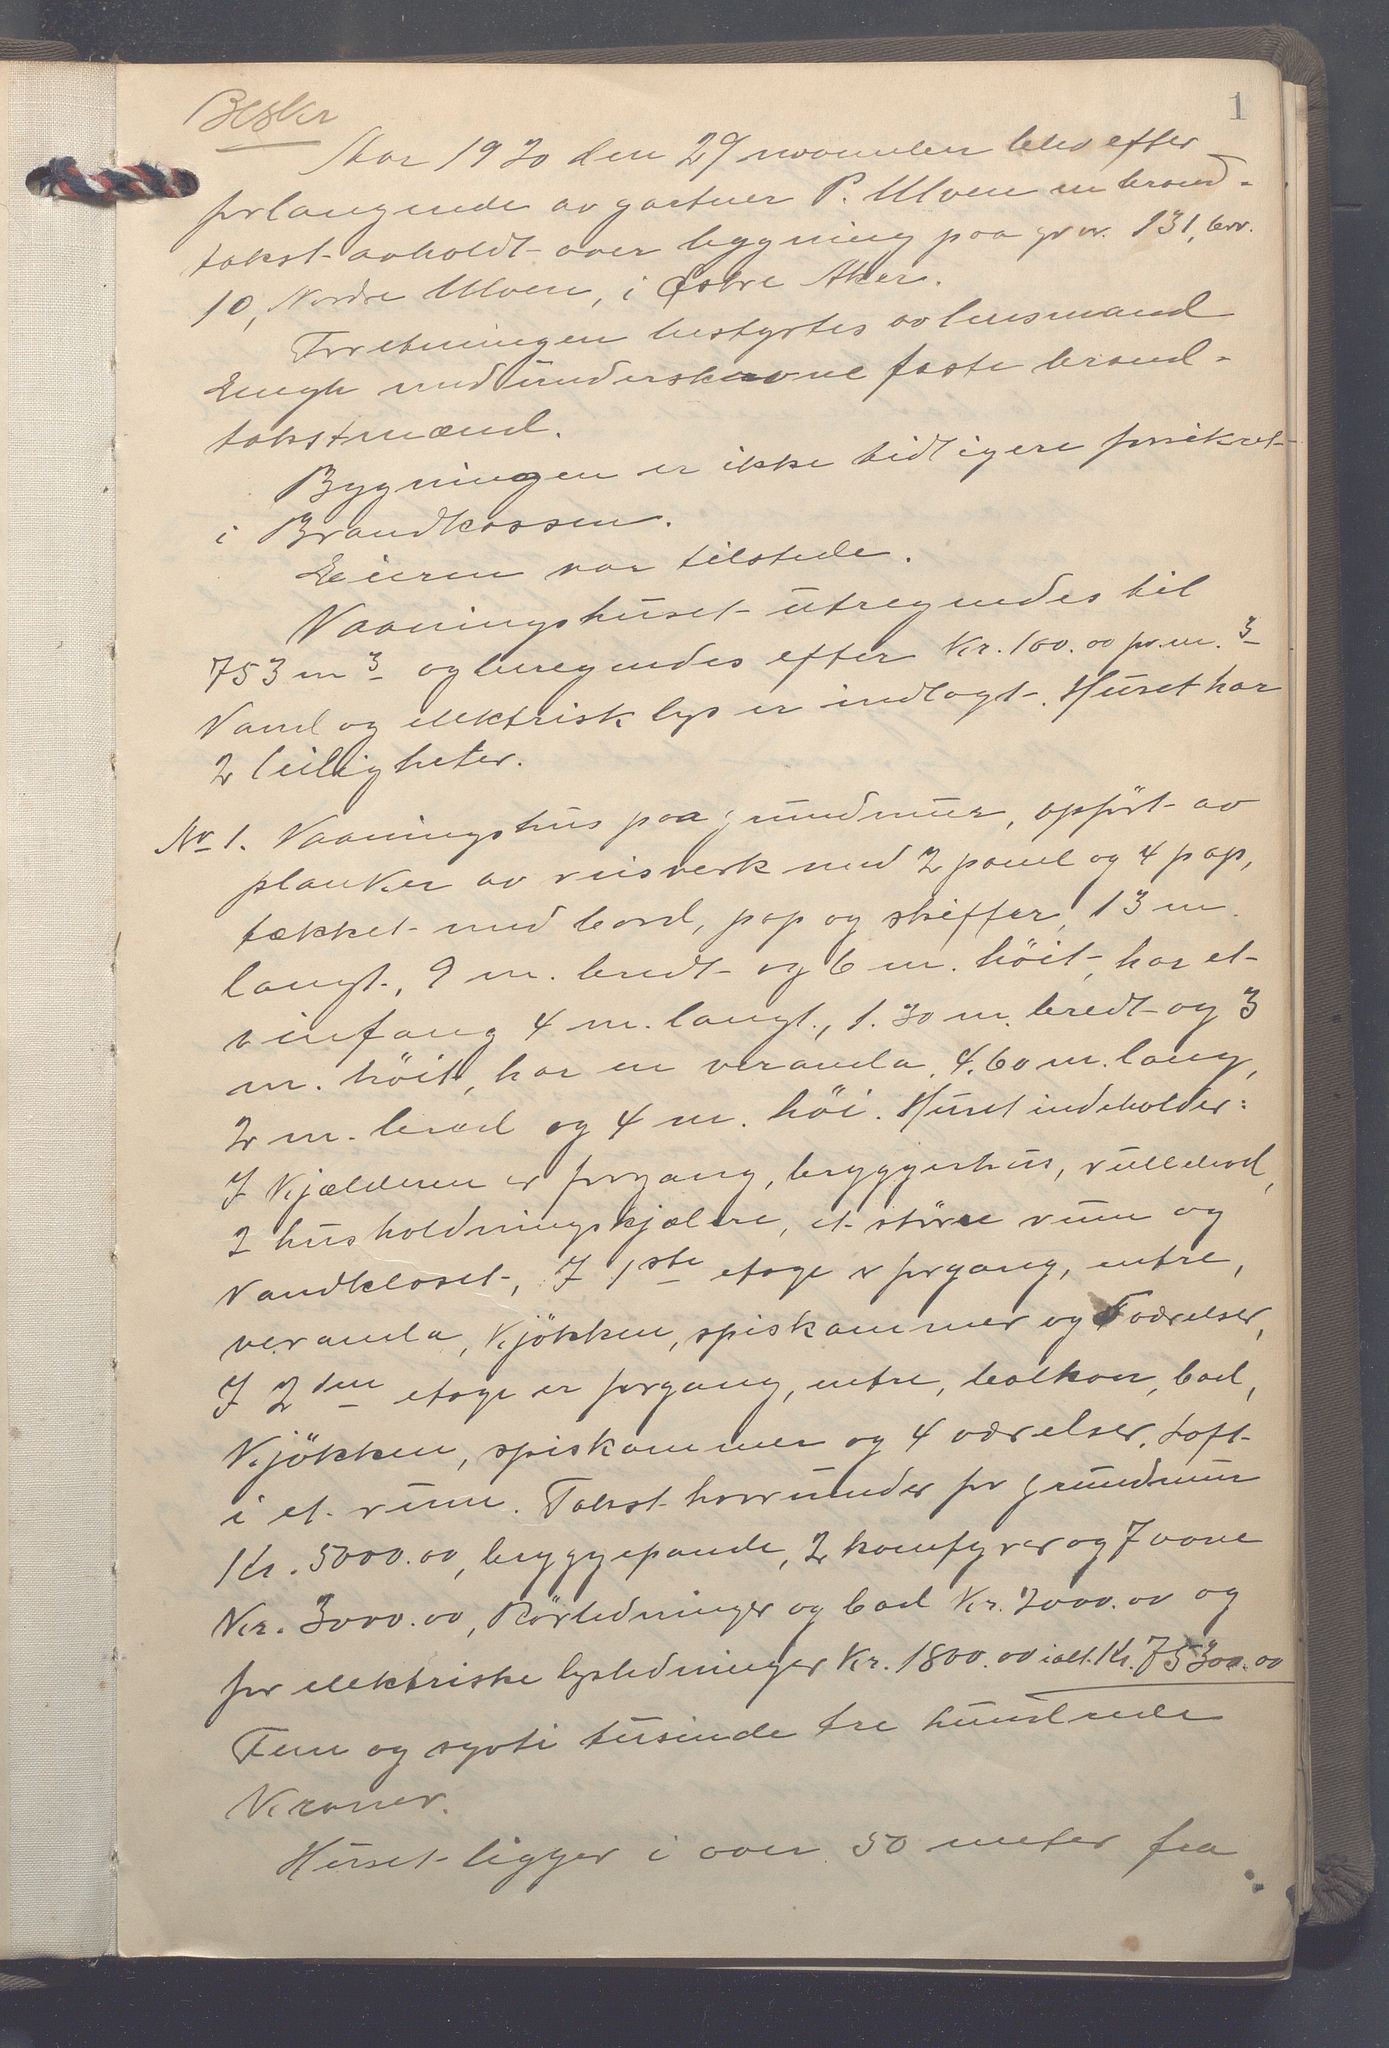 1
Aar 1920 den 29 november blev efter
forlangende av gartner P. Ulven en brand-
takst avholdt over bygning paa gr.nr. 131, brn.
10, Nordre Ulven, i Østre Aker.
Forretningen bestyrtes av lensmand
Engh med underskrevne faste brand-
takstmænd.
Bygningen er ikke tidligere forsikret
i Brandkassen.
Eieren var tilstede.
Vaaningshuset utregnedes til
753 m3 og beregnedes efter Kr. 100.00 pr. m.3
Vand og elektrisk lys er indlagt. Huset har
2 leiligheter.
No 1. Vaaningshus paa grundmur, opført av
planker av reisverk med 2 panel og 4 pap,
tækket med bord, pap og skiffer, 13 m.
langt, 9 m. bredt og 6 m. höit, har et
vinfang 4 m. langt, 1.30 m. bredt og 3
m. höit, har en veranda, 4.60 m. lang,
2 m. bred og 4 m. höi. Huset indeholder:
I Kjælderen er forgang, bryggerhus, rullebod,
2 husholdningskjælere, et större rum og
Vandkloset, I 1ste etage er forgang, entre,
veranda, Kjökken, spiskammer og værelser,
I 2den etage er forgang, entre, balkon, bad,
Kjökken, spiskammer og 4 værelser. Loft
i et rum. Takst herunder for grundmur
Kr. 5000.00, bryggepande, 2 komfyrer og 7 ovne
Kr. 3000.00, Rörledninger og bad Kr. 2000.00 og
for elektriske lysledninger Kr. 1800.00 ialt. Kr. 75300.00
Fem og sytti tusinde tre hundrede
Kroner.
Huset ligger i over 50 meter fra